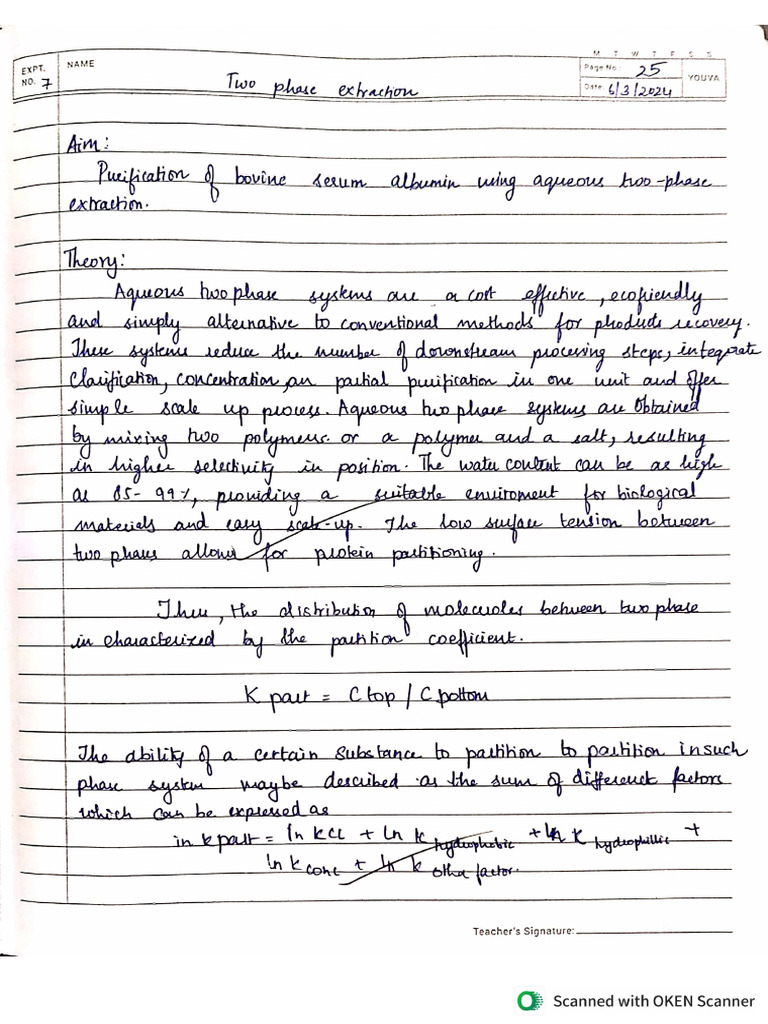 M T W T F S S
EXPT. NO. 7
NAME
Page No.: 25
YOUVA
Date: 6/3/2024
Two phase extraction
Aim:
Purification of bovine serum albumin using aqueous two-phase
extraction.
Theory:
Aqueous two phase systems are a cost effective, ecofriendly
and simply alternative to conventional methods for products recovery.
These systems reduce the number of downstream processing steps, integrate
clarification, concentration, an partial purification in one unit and offer
simple scale up process. Aqueous two phase systems are obtained
by mixing two polymers or a polymer and a salt, resulting
in higher selectivity in position. The water content can be as high
as 85-99%, providing a suitable enviroment for biological
materials and easy scale-up. The low surface tension between
two phases allows for protein partitioning.
Thus, the distribution of molecules between two phase
in characterized by the partition coefficient.
K part = C top / C pottom
The ability of a certain substance to partition to partition in such
phase system maybe described as the sum of different factors
which can be expressed as
in k part = ln kCl + ln k hydrophobic + ln k hydrophillic +
ln k conc + ln k otha factor.
Teacher's Signature:
Scanned with OKEN Scanner